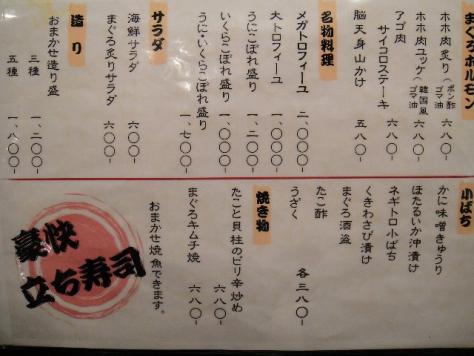 まぐろホルモン
ホホ肉炙り ポン酢 ゴマ油 六八〇-
ホホ肉ユッケ 韓国風 ゴマ油 六八〇-
アゴ肉
サイコロステーキ 六八〇-
脳天身山かけ 五八〇-
名物料理
メガトロフィーユ 二、〇〇〇-
大トロフィーユ 一、〇〇〇-
うにこぼれ盛り 一、二〇〇-
いくらこぼれ盛り 一、〇〇〇-
うに・いくらこぼれ盛り 一、七〇〇-
サラダ
海鮮サラダ 六〇〇-
まぐろ炙りサラダ 六〇〇-
造り
おまかせ造り盛
三種 一、二〇〇-
五種 一、八〇〇-
小ばち
かに味噌きゅうり
ほたるいか沖漬け
ネギトロ小ばち
くきわさび漬け
まぐろ酒盗
たこ酢
うざく
各三八〇-
焼き物
たこと貝柱のピリ辛炒め 六八〇-
まぐろキムチ焼 六八〇-
おまかせ焼魚できます。
豪快
立ち寿司